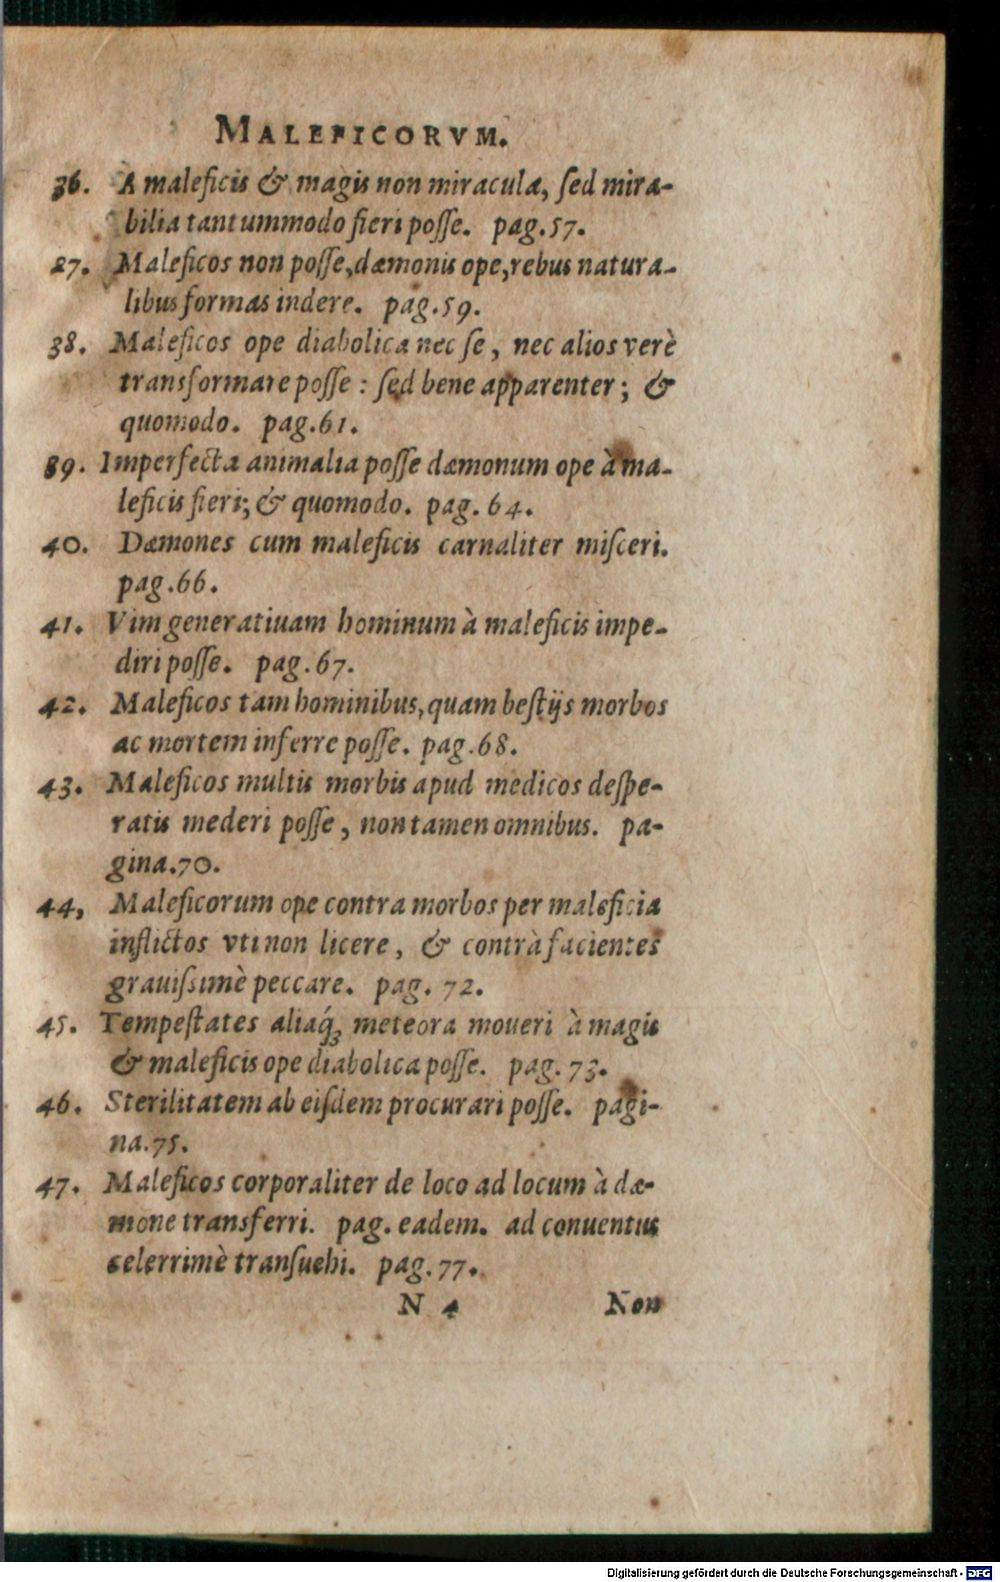 MALEFICORVM.
36. A maleficis & magis non miracula, ſed mira-
bilia tantummodo fieri poſſe. pag.57.
27. Maleficos non poſſe, dæmonis ope, rebus natura-
libus formas indere. pag.59.
38. Maleficos ope diabolica nec ſe, nec alios verè
transformare poſſe : ſed bene apparenter; &
quomodo. pag.61.
39. Imperfecta animalia poſſe dæmonum ope à ma-
leficis fieri; & quomodo. pag. 64.
40. Dæmones cum maleficis carnaliter miſceri.
pag.66.
41. Vim generatiuam hominum à maleficis impe-
diri poſſe. pag.67.
42. Maleficos tam hominibus, quam beſtijs morbos
ac mortem inferre poſſe. pag.68.
43. Maleficos multis morbis apud medicos deſpe-
ratis mederi poſſe, non tamen omnibus. pa-
gina.70.
44, Maleficorum ope contra morbos per maleficia
inflictos vti non licere, & contrà facientes
grauiſsimè peccare. pag. 72.
45. Tempeſtates aliaq́; meteora moueri à magis
& maleficis ope diabolica poſſe. pag. 73.
46. Sterilitatem ab eiſdem procurari poſſe. pagi-
na.75.
47. Maleficos corporaliter de loco ad locum à dæ-
mone transferri. pag. eadem. ad conuentus
celerrimè tranſuehi. pag.77.
N 4 Non
Digitalisierung gefördert durch die Deutsche Forschungsgemeinschaft - DFG